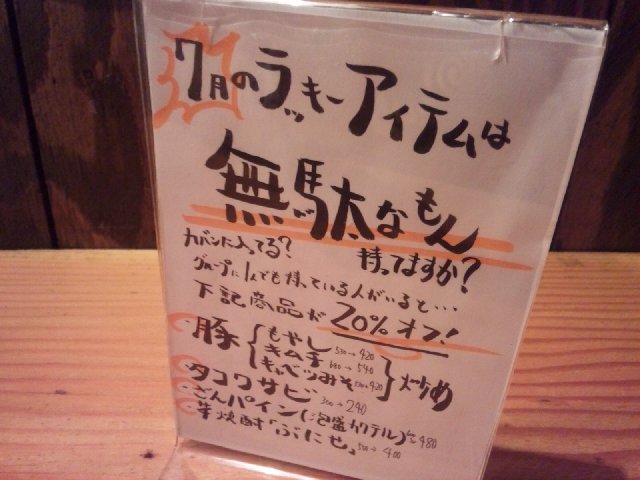 7月のラッキーアイテムは
無駄なもん
持ってますか?
カバンに入ってる?
グループに1人でも持っている人がいると…
下記商品が20%オフ!
・豚{もやし 530→420
キムチ 680→540
キャベツみそ 530→420}炒め
・タコワサビ 300→240
・ごんパイン(泡盛カクテル) 480
・芋焼酎「ぶにせ」 500→400